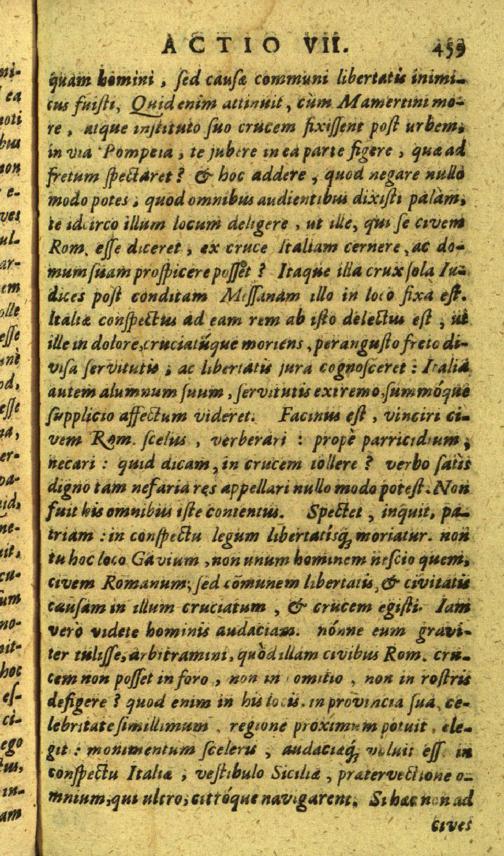 ACTIO VII. 459
quam homini, sed causæ communi libertatis inimi-
cus fuisti, Quid enim attinuit, cùm Mamertini mo-
re, atque instituto suo crucem fixissent post urbem,
in via Pompeia, te jubere in ea parte figere, quæ ad
fretum spectaret? & hoc addere, quod negare nullo
modo potes, quod omnibus audientibus dixisti palàm,
te idcirco illum locum deligere, ut ille, qui se civem
Rom. esse diceret, ex cruce Italiam cernere, ac do-
mum suam prospicere posset? Itaque illa crux sola Iu-
dices post conditam Messanam illo in loco fixa est.
Italiæ conspectus ad eam rem ab isto delectus est, ut
ille in dolore, cruciatúque moriens, perangusto freto di-
visa servitutis, ac libertatis jura cognosceret: Italia
autem alumnum suum, servitutis extremo, summóque
supplicio affectum videret. Facinus est, vinciri ci-
vem Rom. scelus, verberari: propè parricidium,
necari: quid dicam, in crucem tollere? verbo satis
digno tam nefaria res appellari nullo modo potest. Non
fuit his omnibus iste contentus. Spectet, inquit, pa-
triam: in conspectu legum libertatisq́; moriatur. non
tu hoc loco Gavium, non unum hominem nescio quem,
civem Romanum; sed cōmunem libertatis, & civitatis
causam in illum cruciatum, & crucem egisti. Iam
verò videte hominis audaciam. nónne eum gravi-
ter tulisse, arbitramini, quòd illam civibus Rom. cru-
cem non posset in foro, non in comitio, non in rostris
defigere? quod enim in his locis. in provincia sua, ce-
lebritate simillimum, regione proximum potuit, ele-
git: monumentum sceleris, audaciæq́; voluit esse in
conspectu Italiæ, vestibulo Siciliæ, prætervectione o-
mnium, qui ultro, citróque navigarent. Si hæc non ad
cives